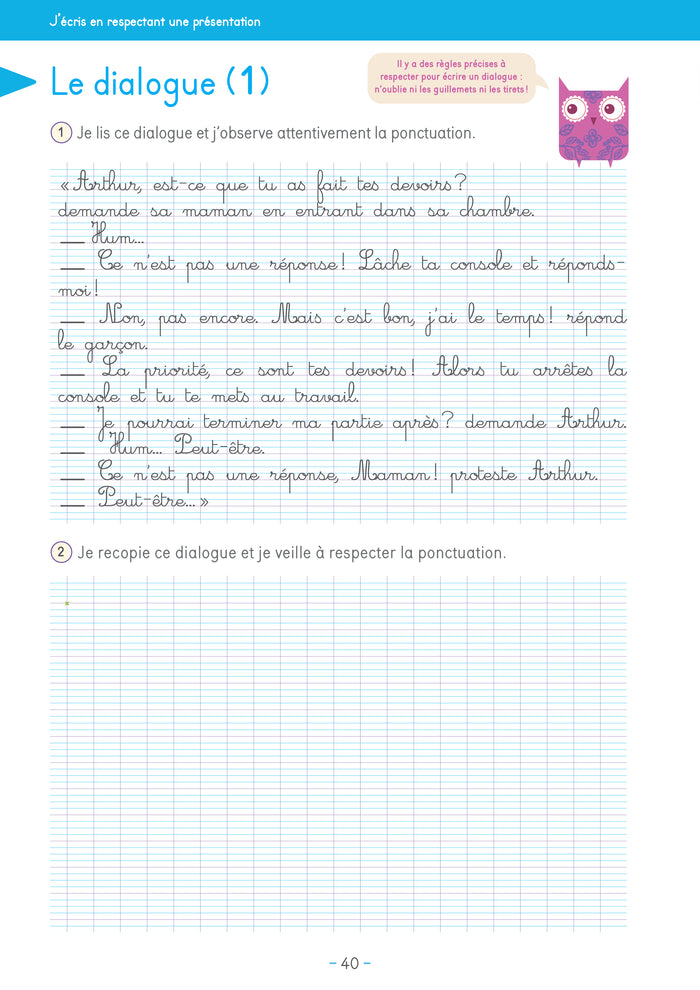 J'écris en respectant une présentation
Le dialogue (1)
Il y a des règles précises à
respecter pour écrire un dialogue :
n'oublie ni les guillemets ni les tirets !
1 Je lis ce dialogue et j'observe attentivement la ponctuation.
« Arthur, est-ce que tu as fait tes devoirs ?
demande sa maman en entrant dans sa chambre.
__ Hum...
__ Ce n'est pas une réponse ! Lâche ta console et réponds-
moi !
__ Non, pas encore. Mais c'est bon, j'ai le temps ! répond
le garçon.
__ La priorité, ce sont tes devoirs ! Alors tu arrêtes la
console et tu te mets au travail.
__ Je pourrai terminer ma partie après ? demande Arthur.
__ Hum... Peut-être.
__ Ce n'est pas une réponse, Maman ! proteste Arthur.
__ Peut-être... »
2 Je recopie ce dialogue et je veille à respecter la ponctuation.
– 40 –